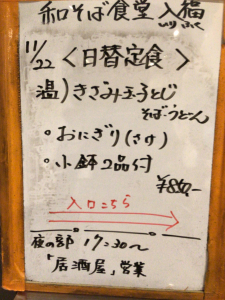 和そば食堂 入福
いりふく
11/22 <日替定食>
温)きざみ玉子とじ
そば・うどん
。おにぎり(さけ)
。小鉢2品付
¥880-
入口こちら
夜の部 17:30〜
「居酒屋」営業